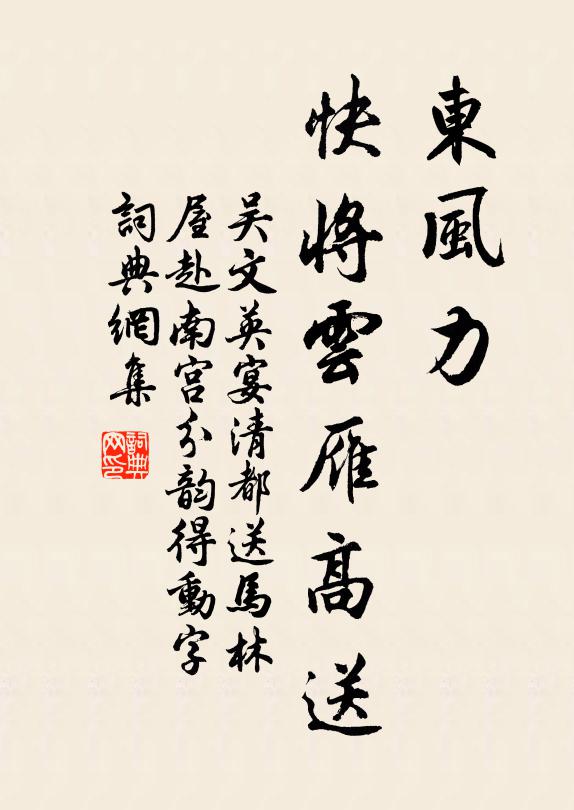 東風力
快將雲雁高送
吴文英宴清都送馬林
屋赴南宫分韵得動字
詞典網集
詞典網印